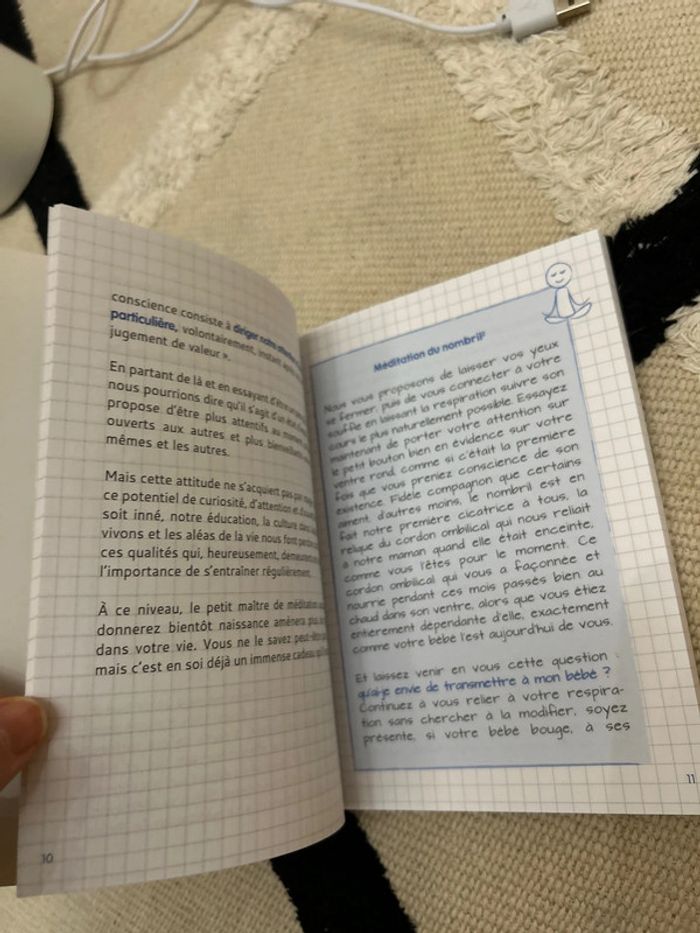 conscience consiste à diriger notre
particulière, volontairement, instant
jugement de valeur ».
En partant de là et en essayant d'être
nous pourrions dire qu'il s'agit d'un
propose d'être plus attentifs au moment
ouverts aux autres et plus bienveillants
mêmes et les autres.
Mais cette attitude ne s'acquiert pas par
ce potentiel de curiosité, d'attention et
soit inné, notre éducation, la culture dans
vivons et les aléas de la vie nous font
ces qualités qui, heureusement,
l'importance de s'entraîner régulièrement.
À ce niveau, le petit maître de méditation
donnerez bientôt naissance amènera plus
dans votre vie. Vous ne le savez peut-être
mais c'est en soi déjà un immense cadeau
10
Méditation du nombril²
Nous vous proposons de laisser vos yeux
se fermer, puis de vous connecter à votre
souffle en laissant la respiration suivre son
cours le plus naturellement possible. Essayez
maintenant de porter votre attention sur
le petit bouton bien en évidence sur votre
ventre rond, comme si c'était la première
fois que vous preniez conscience de son
existence. Fidèle compagnon que certains
aiment, d'autres moins, le nombril est en
fait notre première cicatrice à tous, la
relique du cordon ombilical qui nous reliait
à notre maman quand elle était enceinte,
comme vous l'êtes pour le moment. Ce
cordon ombilical qui vous a façonnée et
nourrie pendant ces mois passés bien au
chaud dans son ventre, alors que vous étiez
entièrement dépendante d'elle, exactement
comme votre bébé l'est aujourd'hui de vous.
Et laissez venir en vous cette question :
qu'ai-je envie de transmettre à mon bébé ?
Continuez à vous relier à votre respira-
tion sans chercher à la modifier, soyez
présente, si votre bébé bouge, à ses
11